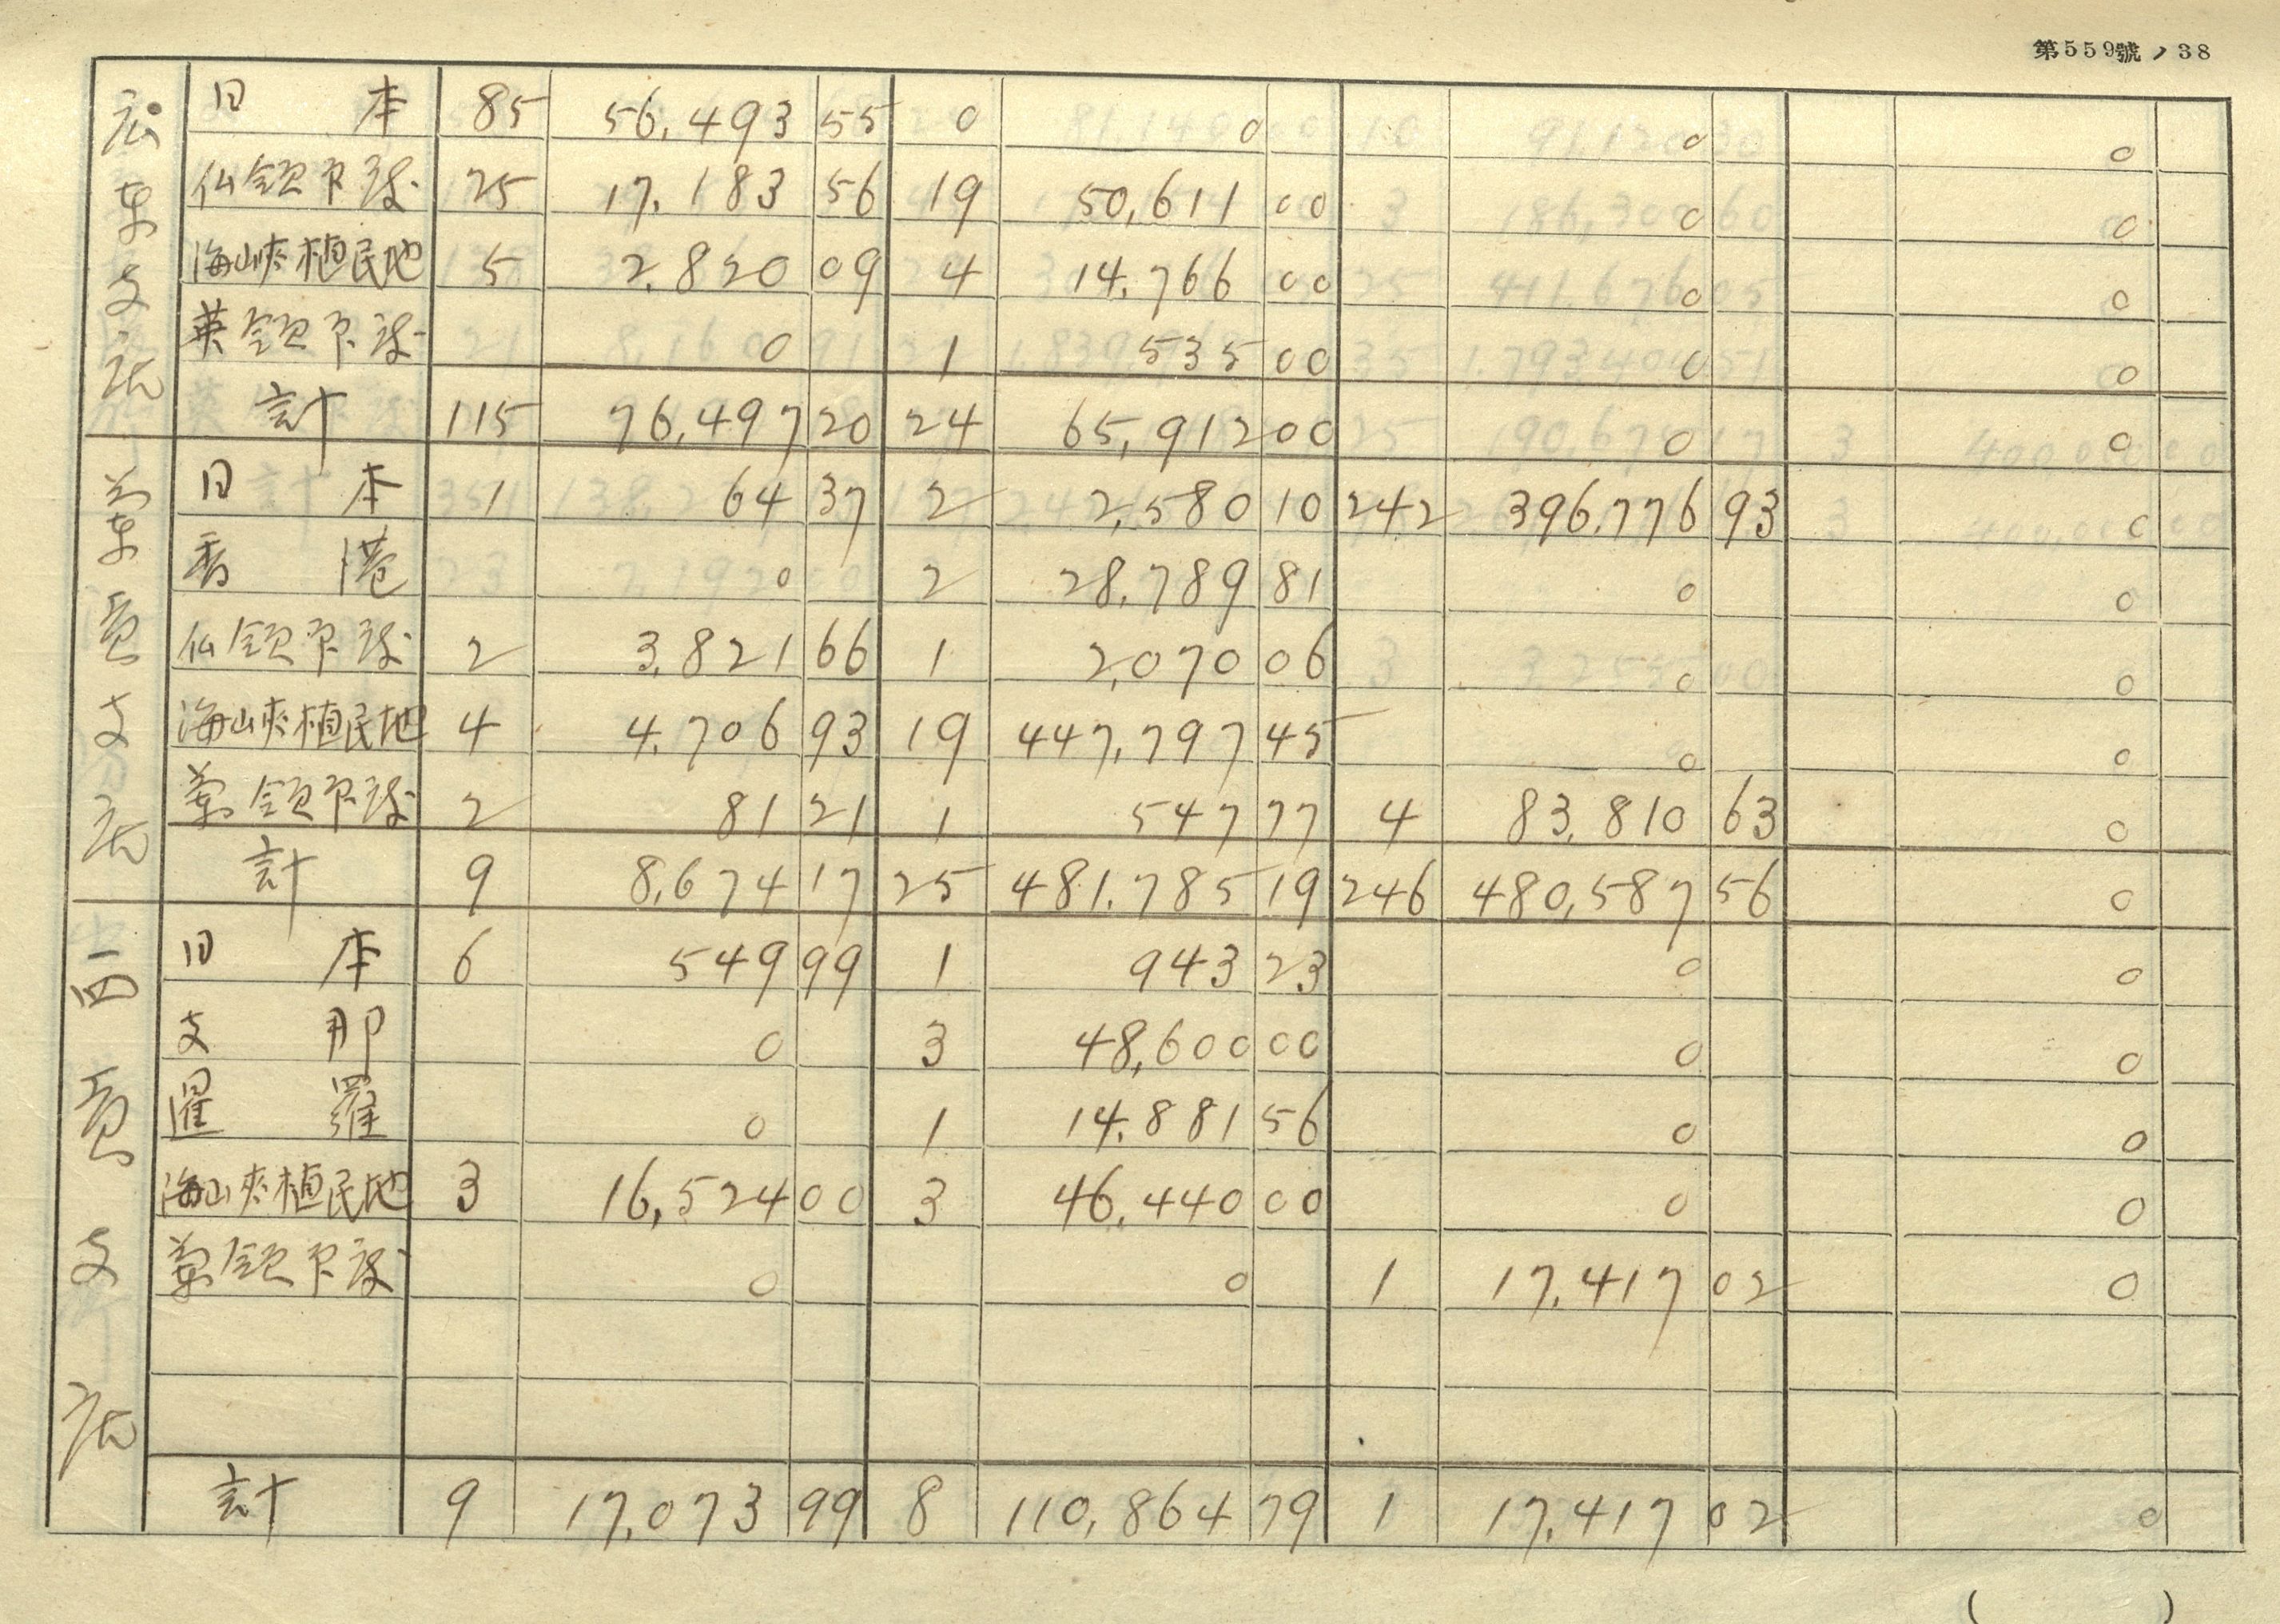 第559號ノ38
広東支店
日本 85 56,493 55 0 0 0 0
仏領印度 25 17,183 56 19 50,611 00 0 0
海峡植民地 5 2,820 09 4 14,766 00 0 0
英領印度 0 1 535 00 0 0
計 115 76,497 20 24 65,912 00 0 0
蘭貢支店
日本 1 64 37 2 2,580 10 242 396,776 93 0
香港 0 2 28,789 81 0 0
仏領印度 2 3,821 66 1 2,070 06 0 0
海峡植民地 4 4,706 93 19 447,797 45 0 0
蘭領印度 2 81 21 1 547 77 4 83,810 63 0
計 9 8,674 17 25 481,785 19 246 480,587 56 0
西貢支店
日本 6 549 99 1 943 23 0 0
支那 0 3 48,600 00 0 0
暹羅 0 1 14,881 56 0 0
海峡植民地 3 16,524 00 3 46,440 00 0 0
蘭領印度 0 0 1 17,417 02 0
計 9 17,073 99 8 110,864 79 1 17,417 02 0
( )